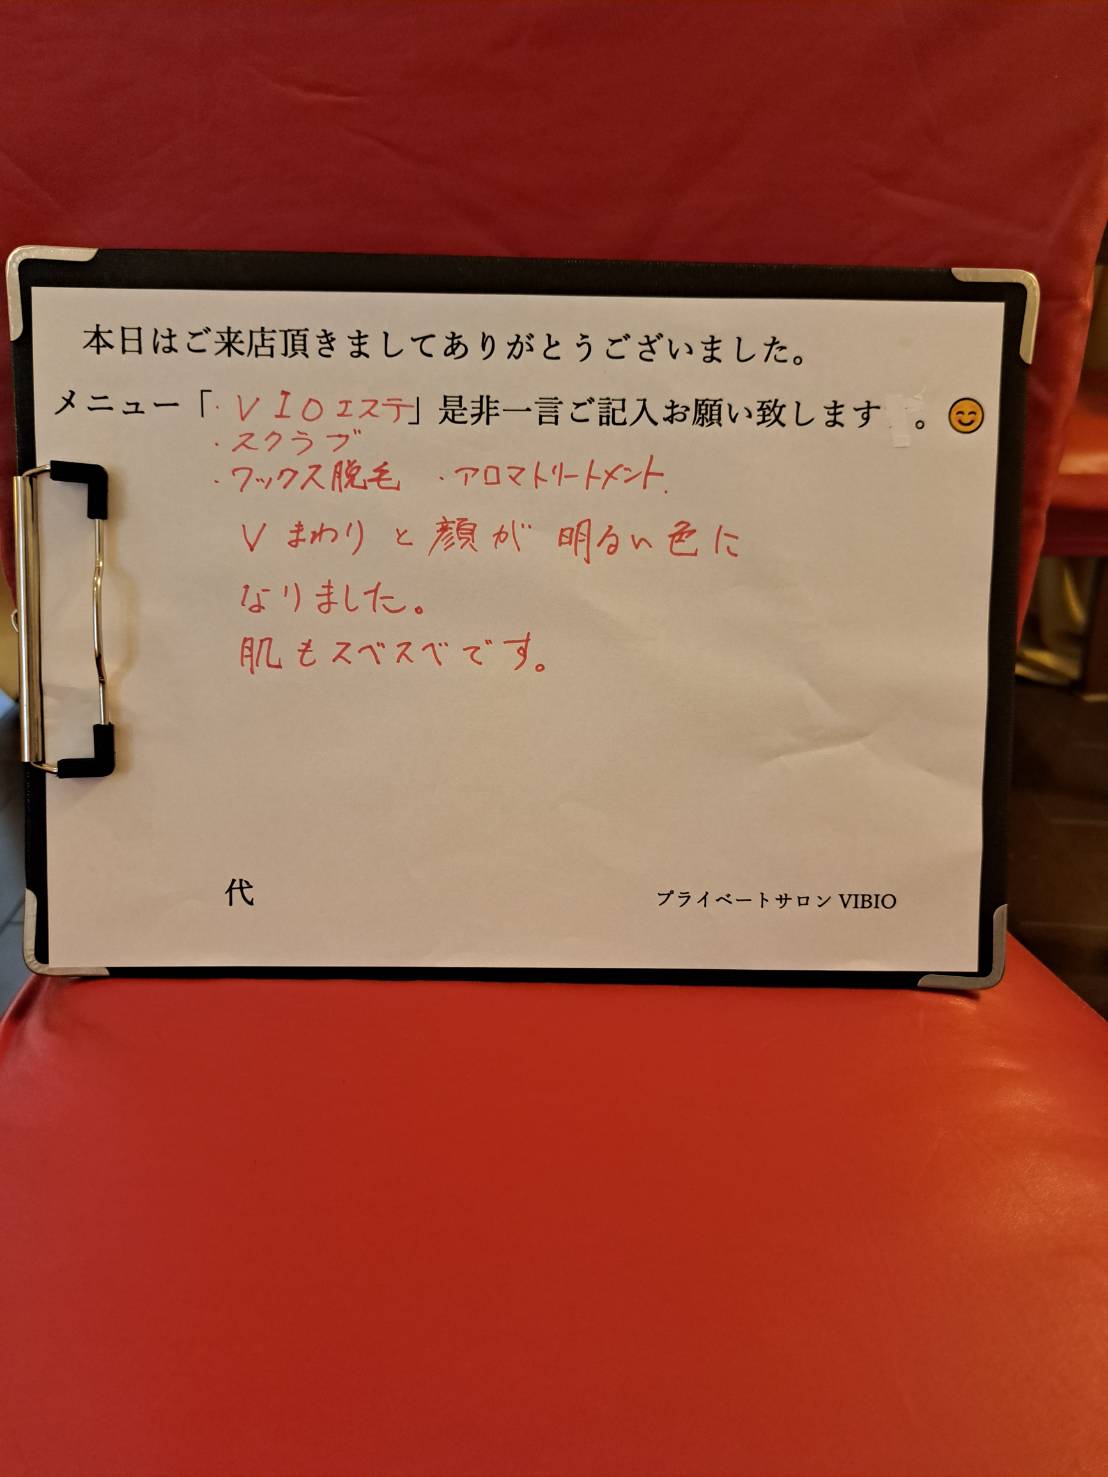 本日はご来店頂きましてありがとうございました。
メニュー「・VIOエステ」是非一言ご記入お願い致します。
・スクラブ
・ワックス脱毛 ・アロマトリートメント.
Vまわりと顔が 明るい色に
なりました。
肌もスベスベです。
代
プライベートサロン VIBIO